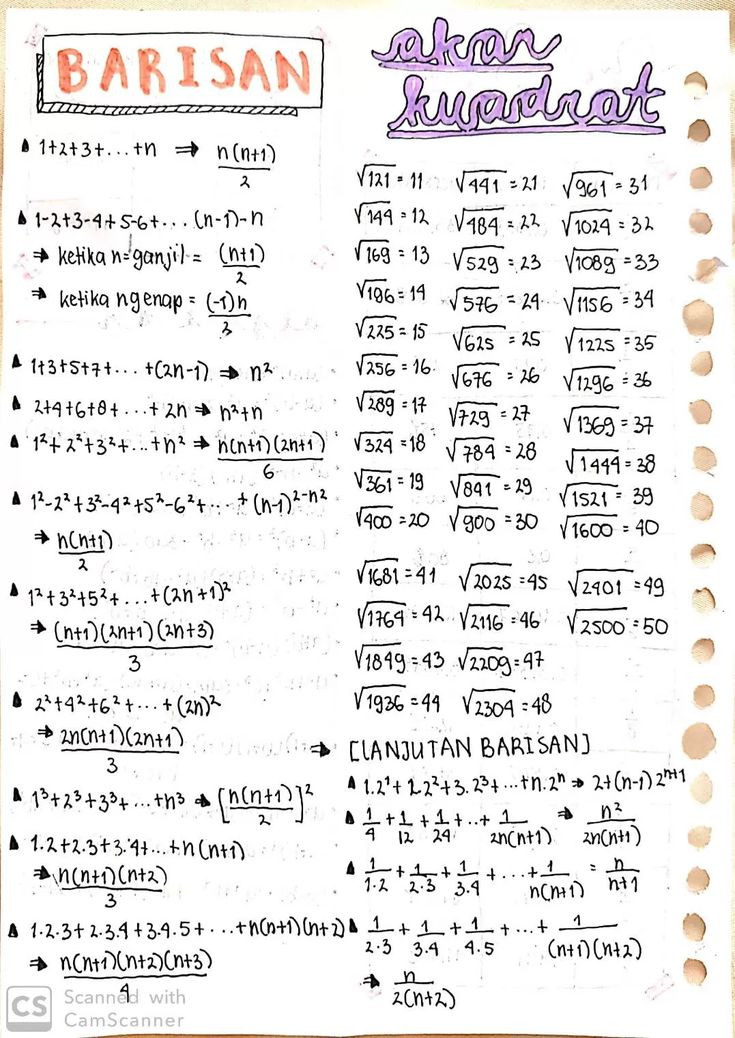 BARISAN
1+2+3+...+n ⇒ n(n+1)/2
1-2+3-4+5-6+...(n-1)-n
⇒ ketika n=ganjil = (n+1)/2
⇒ ketika n genap = (-1)n/3
1+3+5+7+...+(2n-1) ⇒ n²
2+4+6+8+...+2n ⇒ n²+n
1²+2²+3²+...+n² ⇒ n(n+1)(2n+1)/6
1²-2²+3²-4²+5²-6²+...+(n-1)²⁻ⁿ²
⇒ n(n+1)/2
1²+3²+5²+...+(2n+1)²
⇒ (n+1)(2n+1)(2n+3)/3
2²+4²+6²+...+(2n)²
⇒ 2n(n+1)(2n+1)/3
1³+2³+3³+...+n³ ⇒ [n(n+1)/2]²
1.2+2.3+3.4+...+n(n+1)
⇒ n(n+1)(n+2)/3
1.2.3+2.3.4+3.4.5+...+n(n+1)(n+2)
⇒ n(n+1)(n+2)(n+3)/4
akar
kuadrat
√121 = 11 √441 = 21 √961 = 31
√144 = 12 √484 = 22 √1024 = 32
√169 = 13 √529 = 23 √1089 = 33
√196 = 14 √576 = 24 √1156 = 34
√225 = 15 √625 = 25 √1225 = 35
√256 = 16 √676 = 26 √1296 = 36
√289 = 17 √729 = 27 √1369 = 37
√324 = 18 √784 = 28 √1444 = 38
√361 = 19 √841 = 29 √1521 = 39
√400 = 20 √900 = 30 √1600 = 40
√1681 = 41 √2025 = 45 √2401 = 49
√1764 = 42 √2116 = 46 √2500 = 50
√1849 = 43 √2209 = 47
√1936 = 44 √2304 = 48
⇒ [LANJUTAN BARISAN]
1.2¹+2.2²+3.2³+...+n.2ⁿ ⇒ 2+(n-1)2ⁿ⁺¹
1/4 + 1/12 + 1/24 +..+ 1/2n(n+1) ⇒ n²/2n(n+1)
1/1.2 + 1/2.3 + 1/3.4 +...+ 1/n(n+1) = n/n+1
1/2.3 + 1/3.4 + 1/4.5 +...+ 1/(n+1)(n+2)
⇒ n/2(n+2)
CS Scanned with
CamScanner